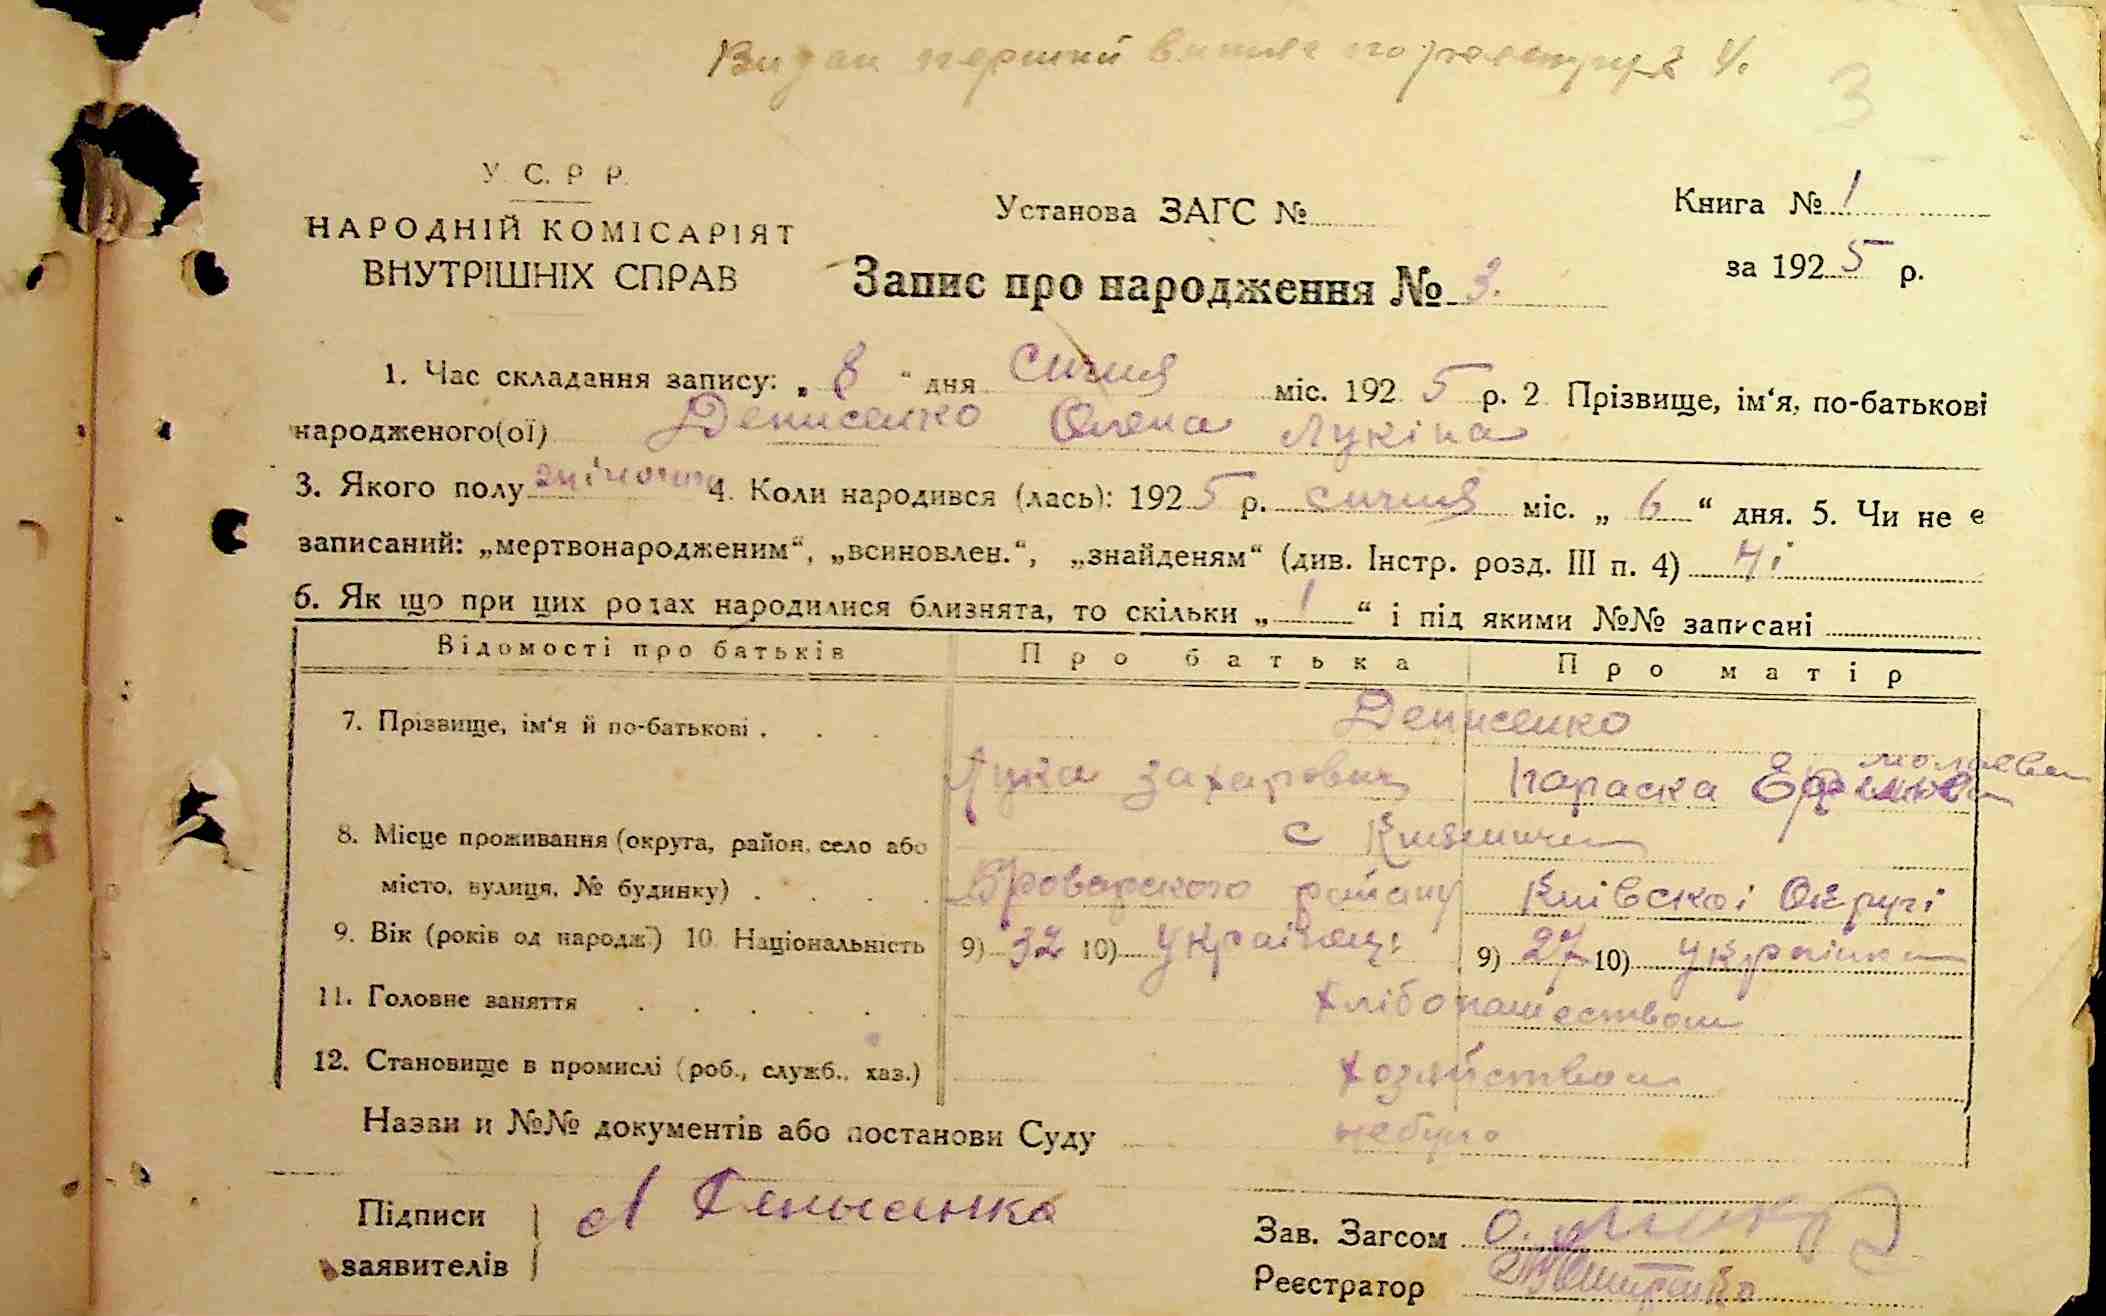 Видан перший витяг по реєстру з 4.
3
У. С. Р. Р.
НАРОДНІЙ КОМІСАРІЯТ
ВНУТРІШНІХ СПРАВ
Установа ЗАГС №
Книга № 1
за 1925 р.
Запис про народження № 3.
1. Час складання запису: „ 8 “ дня січня міс. 1925 р. 2. Прізвище, ім‘я, по-батькові
народженого(ої) Денисенко Олена Лукіна
3. Якого полу жіночий 4. Коли народився (лась): 1925 р. січня міс. „ 6 “ дня. 5. Чи не є
записаний: „мертвонародженим“, „всиновлен.“, „знайденям“ (див. Інстр. розд. III п. 4) Ні
6. Як що при цих родах народилися близнята, то скільки „ 1 “ і під якими №№ записані
Відомості про батьків Про батька Про матір
7. Прізвище, ім‘я й по-батькові . . . Денисенко
Лука Захарович Параска
8. Місце проживання (округа, район, село або с Княжичи
місто, вулиця, № будинку) . . . . Броварского району Київскоі Округі
9. Вік (років од народж.) 10. Національність 9) 32 10) Українец 9) 27 10) Українка
11. Головне заняття . . . . . . хлібопашеством
12. Становище в промислі (роб., служб., хаз.) хозяйством
Назви и №№ документів або постанови Суду небуло
Підписи
заявителів
Зав. Загсом
Реєстратор